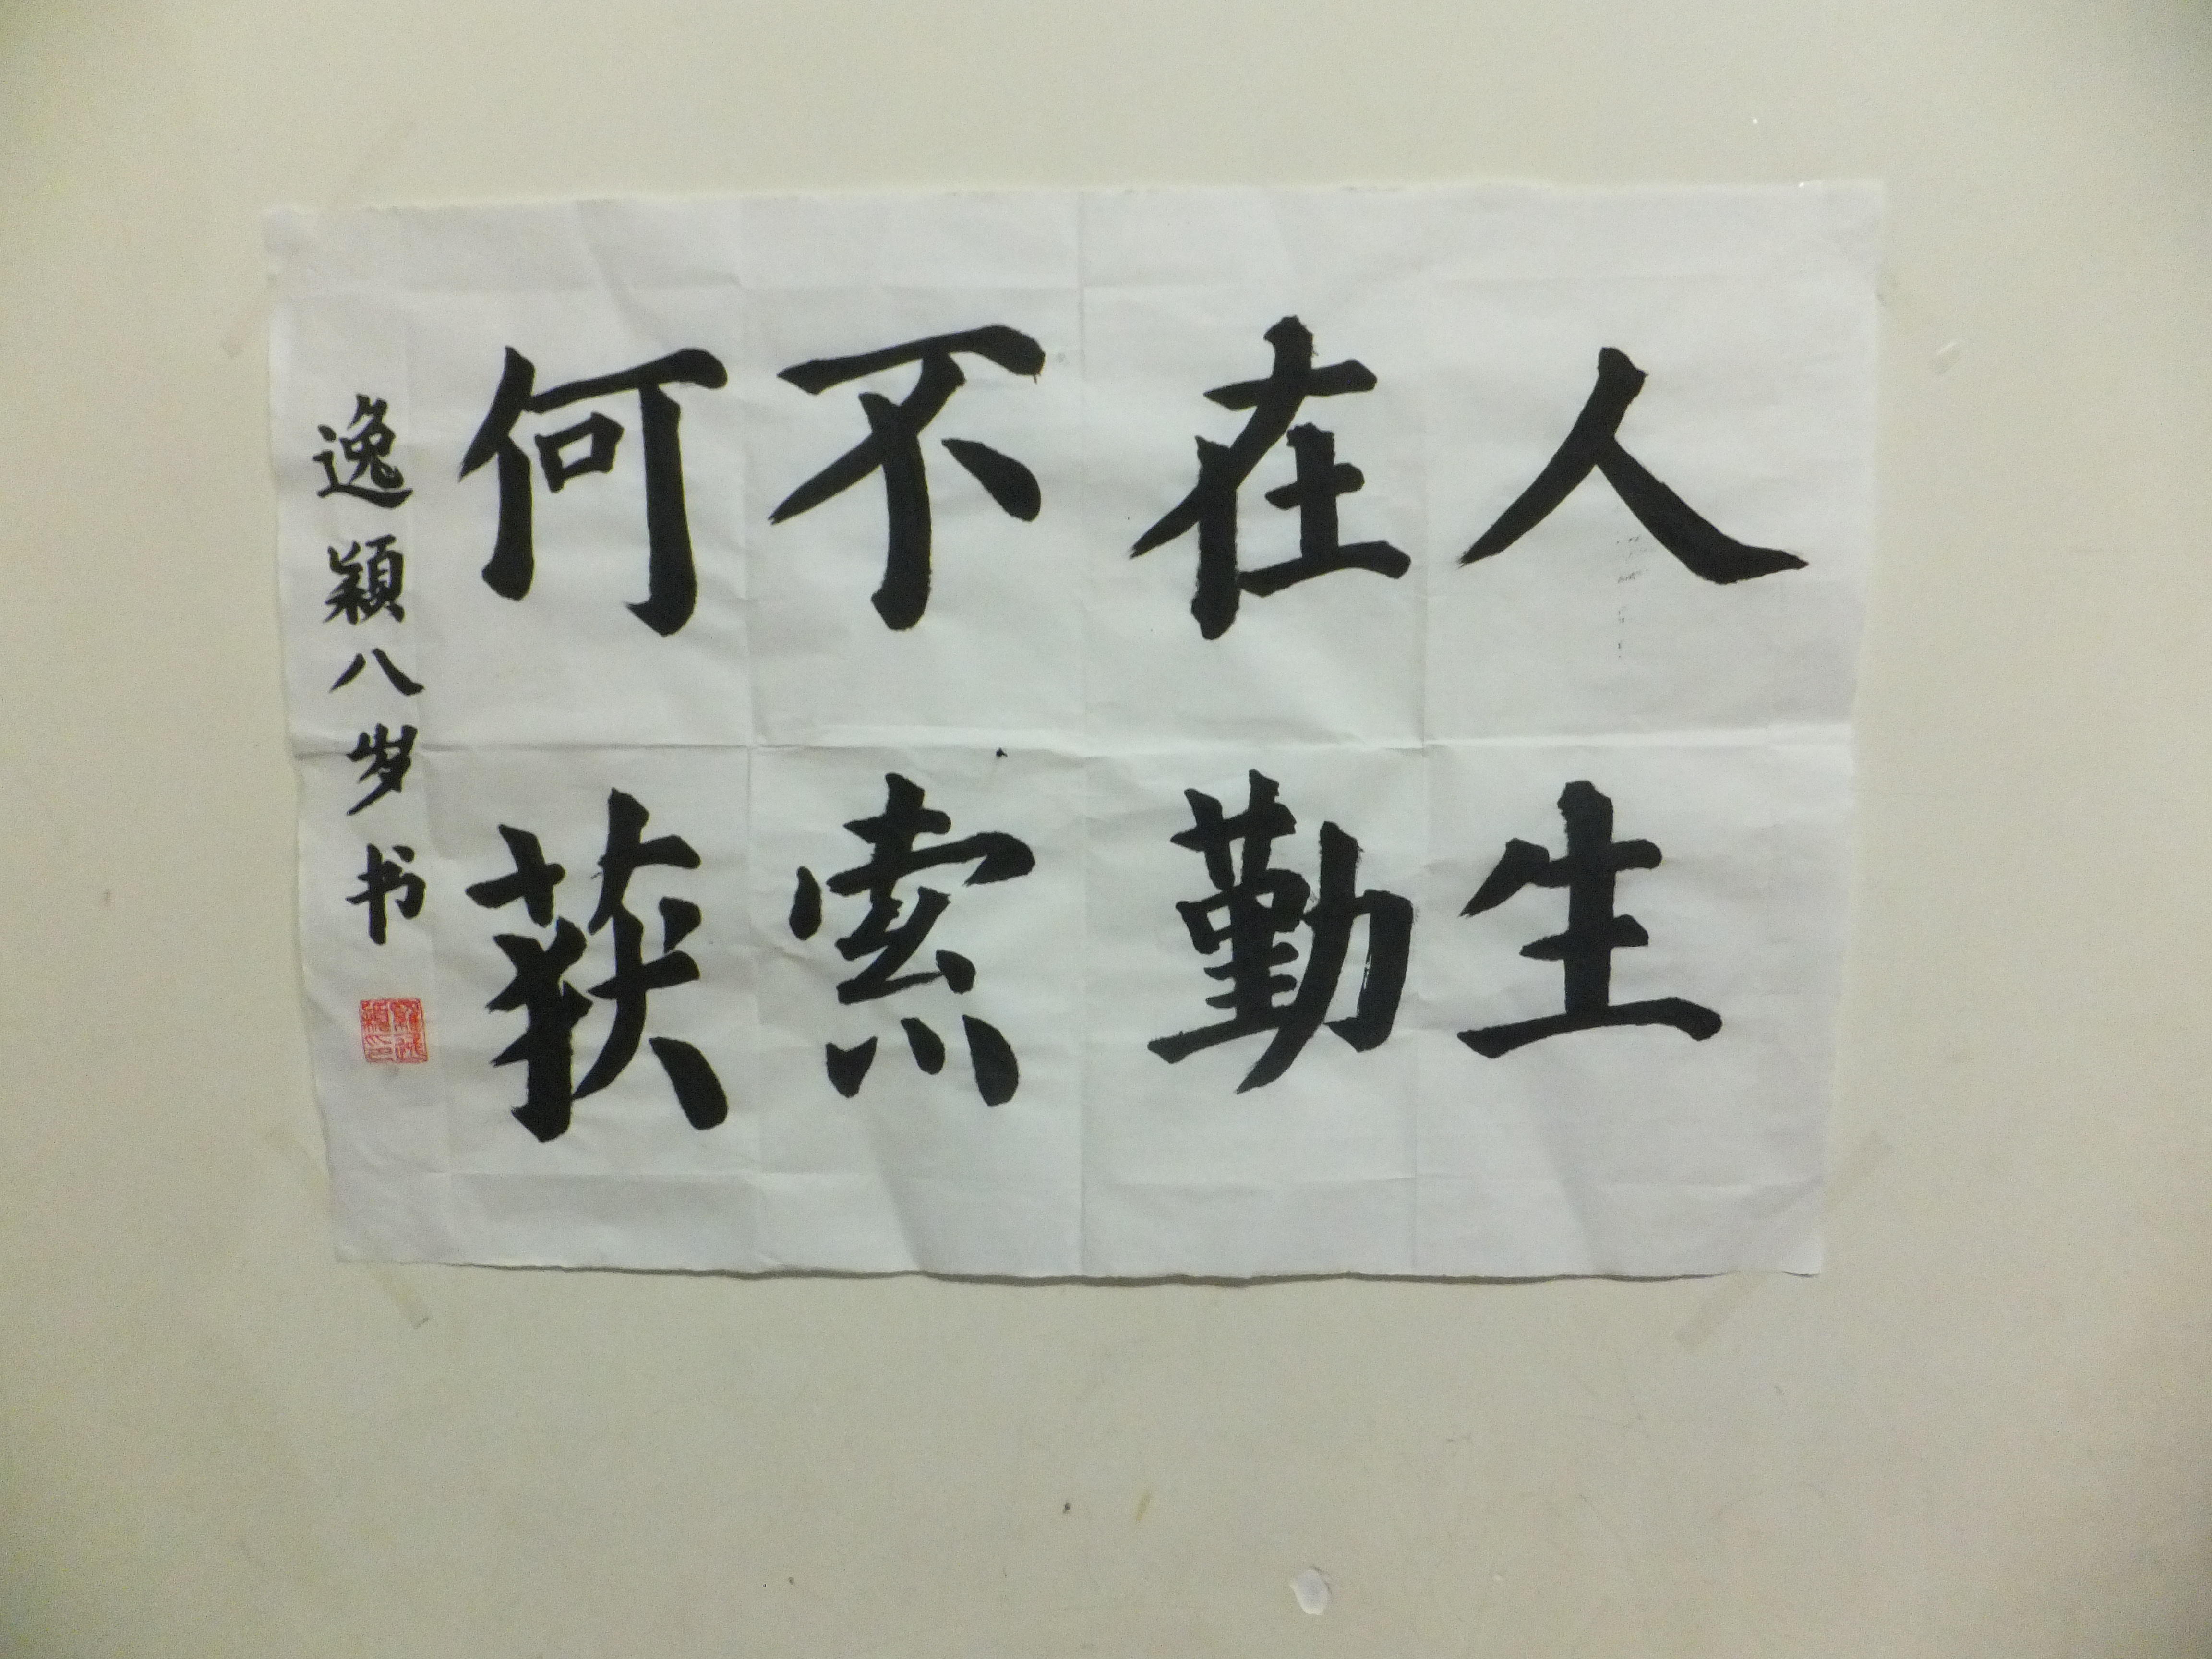 人生
在勤
不索
何获
逸颖八岁书